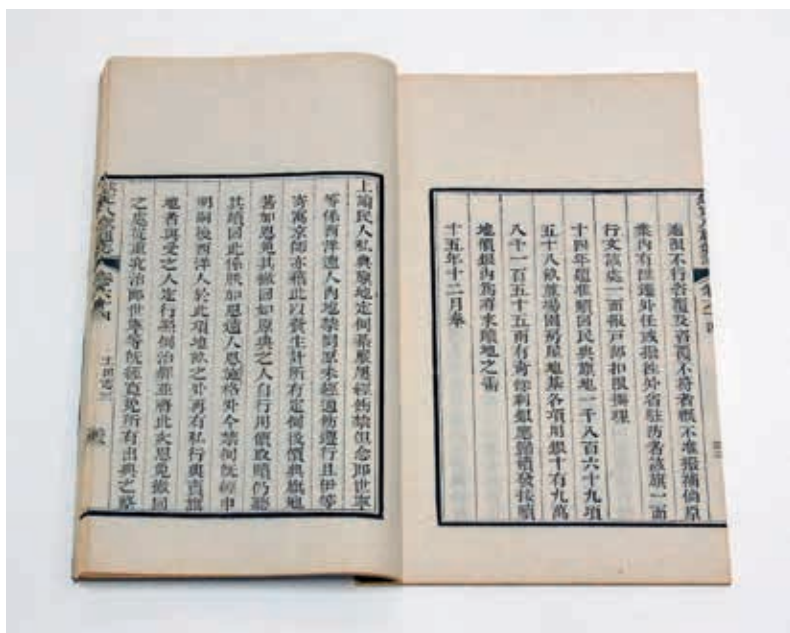 過限不行咨覆及咨覆不符者概不准撥補倘原
案內有陞遷外任或撥往外省駐防者該旗一面
行文該處一面報戶部扣限辦理
十四年題准贖回民典旗地一千八百六十九項
五十八畝並場園房屋地基各項用銀十有九萬
八千一百五十五兩有奇俟利銀應歸贖發接贖
地價銀內為有未贖地之需
十五年十二月奉
上諭民人私典旗地定例綦嚴屢經飭禁但念郎世寧
等係西洋遠人內地禁例原未經通飭遵行且伊等
寄寓京師亦藉此以資生計所有定例後價典旗地
著加恩免其撤回如原典之人自行用價取贖仍聽
其贖回此係朕加恩遠人恩施格外今禁例既經申
明嗣後西洋人於此項地畝之外再有私行典賣旗
地者與受之人定行照例治罪並將此次恩免撤回
之處從重究治郎世寧等既經寬免所有出典之蔡
土田志三